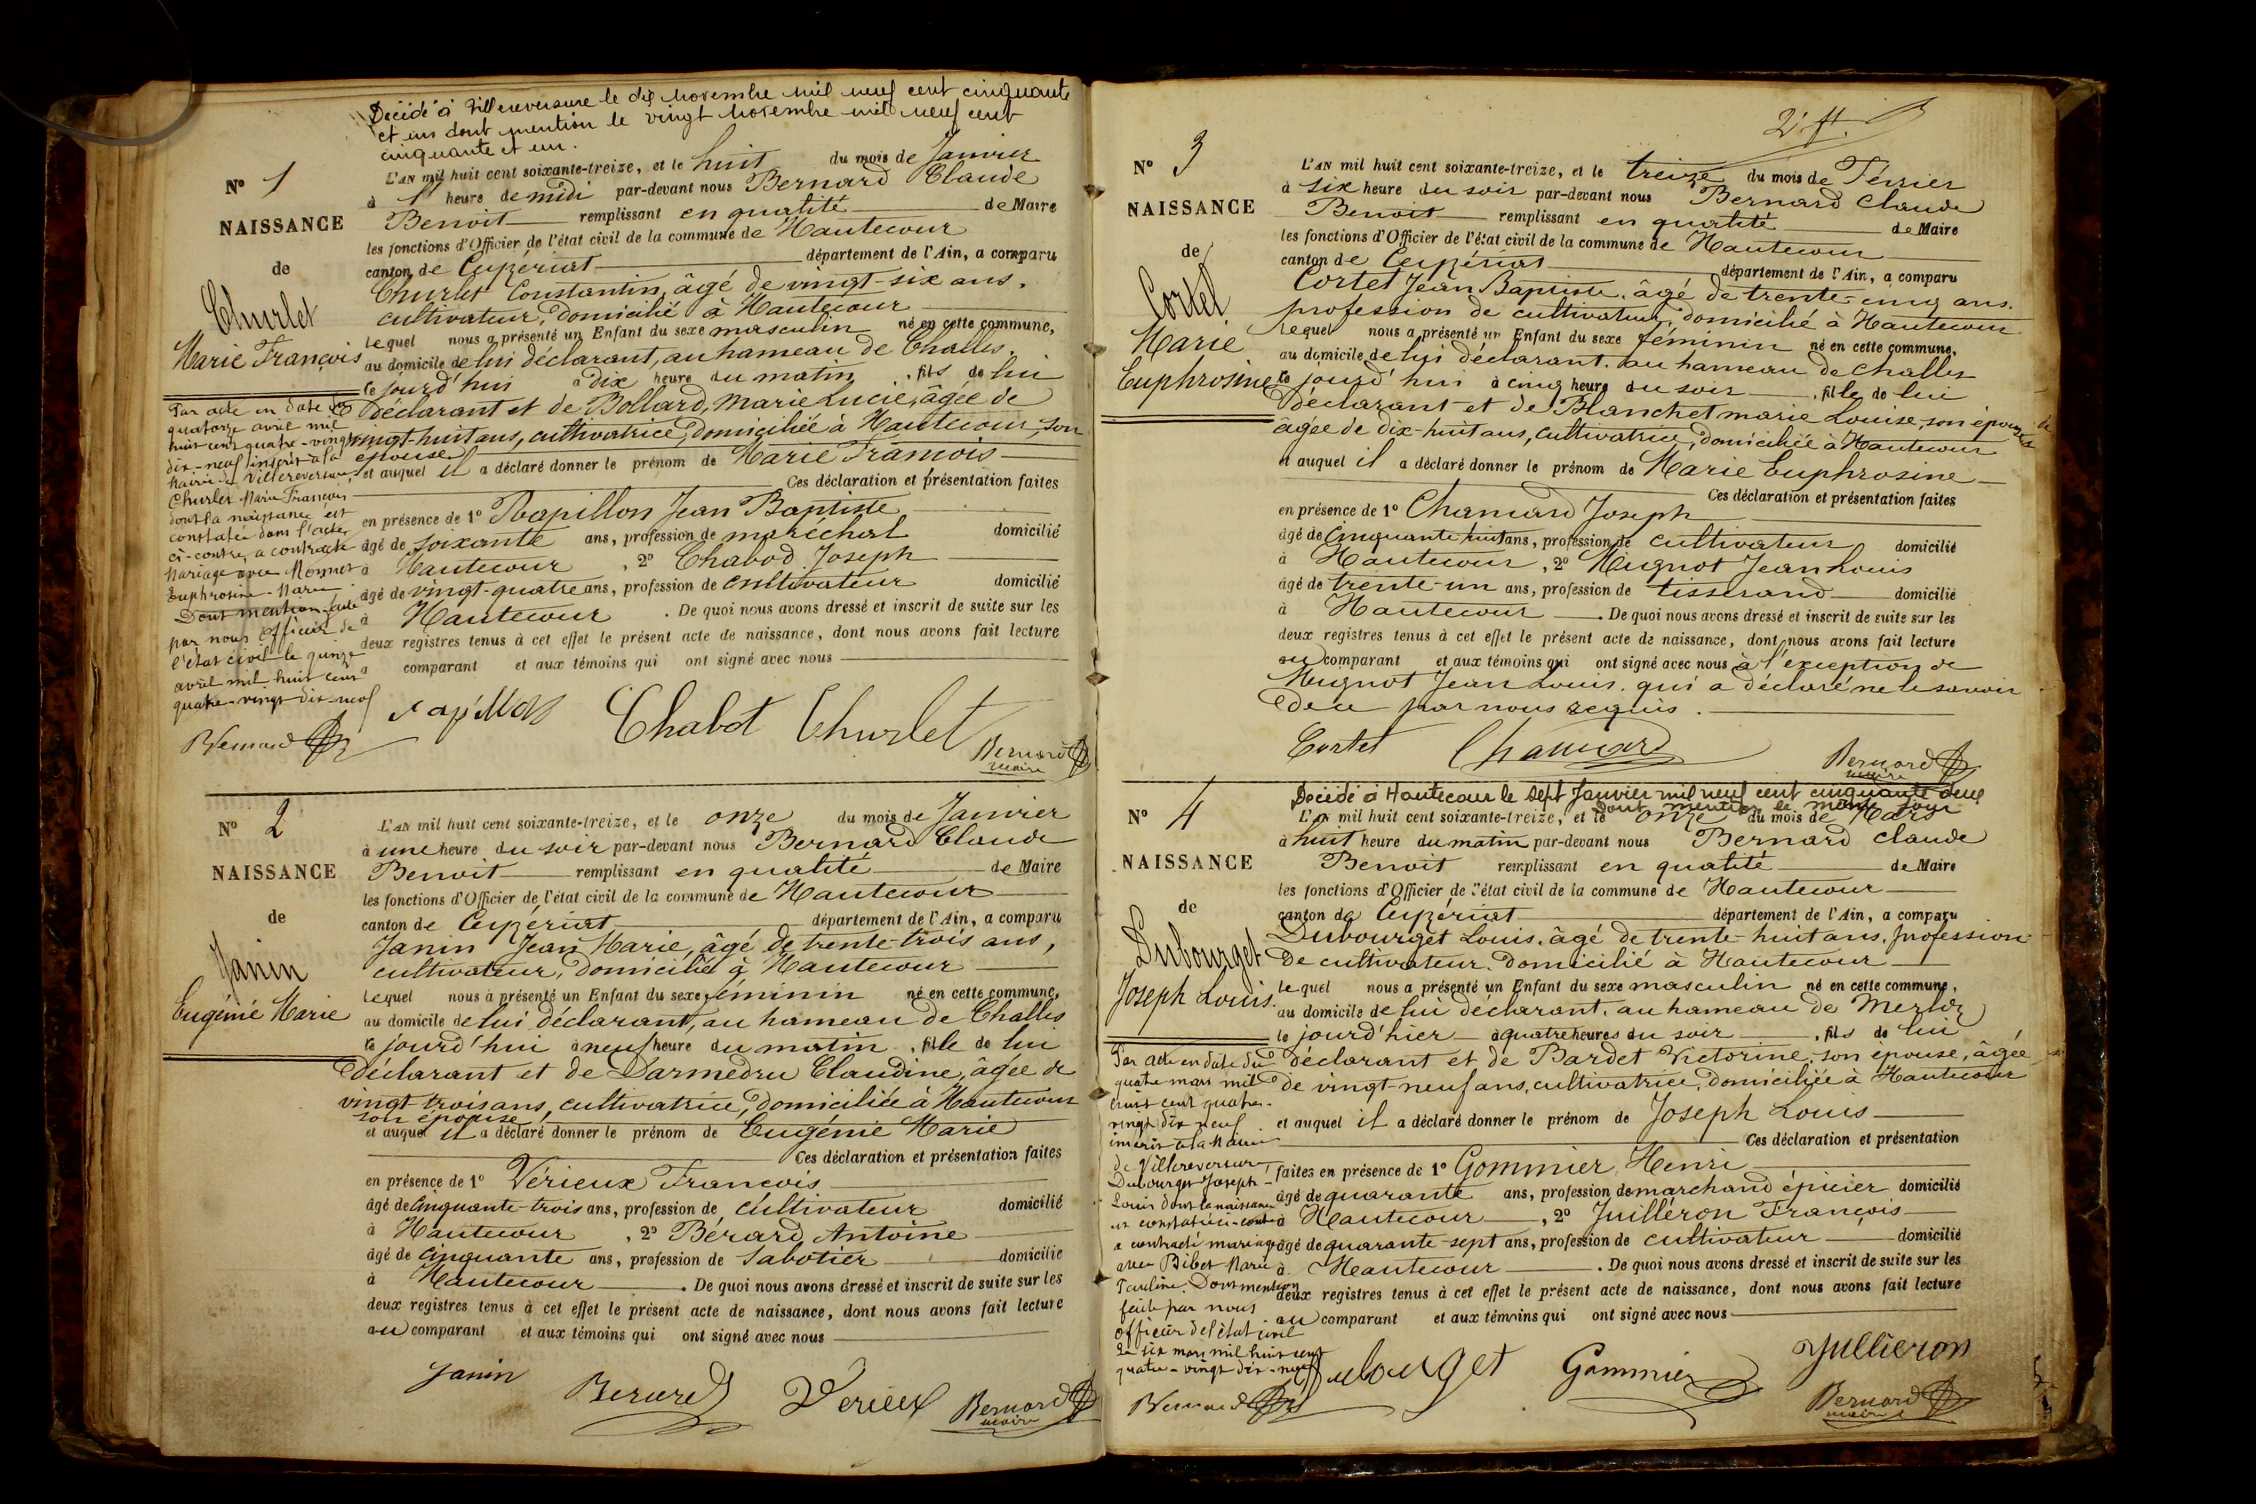 Décédé à Villereversure le dix novembre mil neuf cent cinquante
et un dont mention le vingt novembre mil neuf cent
cinquante et un.
N° 1
NAISSANCE
de
Churlet
Marie François
L'AN mil huit cent soixante-treize, et le huit du mois de Janvier
à 1 heure de midi par-devant nous Bernard Claude
Benoit remplissant en qualité de Maire
les fonctions d'Officier de l'état civil de la commune de Hautecour
canton de Ceyzériat département de l'Ain, a comparu
Churlet Constantin, âgé de vingt-six ans,
cultivateur, domicilié à Hautecour
Lequel nous a présenté un Enfant du sexe masculin né en cette commune,
au domicile de lui déclarant, au hameau de Challes
le jourd'hui à dix heure du matin, fils de lui
déclarant et de Bollard, Marie Lucie, âgée de
vingt-huit ans, cultivatrice, domiciliée à Hautecour, son
épouse
et auquel il a déclaré donner le prénom de Marie François
Ces déclaration et présentation faites
en présence de 1° Papillon Jean Baptiste
âgé de soixante ans, profession de maréchal domicilié
à Hautecour, 2° Chabod Joseph
âgé de vingt-quatre ans, profession de cultivateur domicilié
à Hautecour. De quoi nous avons dressé et inscrit de suite sur les
deux registres tenus à cet effet le présent acte de naissance, dont nous avons fait lecture
a comparant et aux témoins qui ont signé avec nous
Par acte en date du
quatorze avril mil
huit cent quatre-vingt
dix-neuf inscrit à la
Mairie de Villereversure,
Churlet Marie François
dont la naissance est
constatée dans l'acte
ci-contre, a contracté
Mariage avec Monnet
Euphrosine-Marie
Dont mention faite
par nous Officier de
l'état civil le quinze
avril mil huit cent
quatre-vingt dix-neuf
Bernard
Papillon Chabot Churlet
Bernard
maire
N° 2
NAISSANCE
de
Janin
Eugénie Marie
L'AN mil huit cent soixante-treize, et le onze du mois de Janvier
à une heure du soir par-devant nous Bernard Claude
Benoit remplissant en qualité de Maire
les fonctions d'Officier de l'état civil de la commune de Hautecour
canton de Ceyzériat département de l'Ain, a comparu
Janin Jean Marie, âgé de trente-trois ans,
cultivateur, domicilié à Hautecour
Lequel nous a présenté un Enfant du sexe féminin né en cette commune,
au domicile de lui déclarant, au hameau de Challes
le jourd'hui à neuf heure du matin, fille de lui
déclarant et de Darmedru Claudine, âgée de
vingt-trois ans, cultivatrice, domiciliée à Hautecour
son épouse
et auquel il a déclaré donner le prénom de Eugénie Marie
Ces déclaration et présentation faites
en présence de 1° Vérieux François
âgé de cinquante-trois ans, profession de cultivateur domicilié
à Hautecour, 2° Bérard Antoine
âgé de cinquante ans, profession de Sabotier domicilié
à Hautecour. De quoi nous avons dressé et inscrit de suite sur les
deux registres tenus à cet effet le présent acte de naissance, dont nous avons fait lecture
au comparant et aux témoins qui ont signé avec nous
Janin Berard Verieux Bernard
maire
2e ft.
N° 3
NAISSANCE
de
Cortet
Marie
Euphrosine
L'AN mil huit cent soixante-treize, et le treize du mois de Février
à six heure du soir par-devant nous Bernard Claude
Benoit remplissant en qualité de Maire
les fonctions d'Officier de l'état civil de la commune de Hautecour
canton de Ceyzériat département de l'Ain, a comparu
Cortet Jean Baptiste, âgé de trente-cinq ans.
profession de cultivateur, domicilié à Hautecour
Lequel nous a présenté un Enfant du sexe féminin né en cette commune,
au domicile de lui déclarant, au hameau de Challes
le jourd'hui à cinq heure du soir, fille de lui
déclarant et de Blanchet Marie Louise, son épouse
âgée de dix-huit ans, cultivatrice, domiciliée à Hautecour
et auquel il a déclaré donner le prénom de Marie Euphrosine
Ces déclaration et présentation faites
en présence de 1° Chanard Joseph
âgé de cinquante huit ans, profession de cultivateur domicilié
à Hautecour, 2° Mugnot Jean Louis
âgé de trente-un ans, profession de tisserand domicilié
à Hautecour. De quoi nous avons dressé et inscrit de suite sur les
deux registres tenus à cet effet le présent acte de naissance, dont nous avons fait lecture
au comparant et aux témoins qui ont signé avec nous à l'exception de
Mugnot Jean Louis qui a déclaré ne le savoir
de ce par nous requis.
Cortet Chanard Bernard
maire
Décédé à Hautecour le sept Janvier mil neuf cent cinquante deux
dont mention le même jour
N° 4
NAISSANCE
de
Dubourget
Joseph Louis.
L'AN mil huit cent soixante-treize, et le onze du mois de Mars
à huit heure du matin par-devant nous Bernard Claude
Benoit remplissant en qualité de Maire
les fonctions d'Officier de l'état civil de la commune de Hautecour
canton de Ceyzériat département de l'Ain, a comparu
Dubourget Louis, âgé de trente-huit ans, profession
de cultivateur, domicilié à Hautecour
Lequel nous a présenté un Enfant du sexe masculin né en cette commune,
au domicile de lui déclarant, au hameau de Merloz
le jourd'hier à quatre heures du soir, fils de lui
déclarant et de Bardet Victorine, son épouse, âgée
de vingt-neuf ans, cultivatrice, domiciliée à Hautecour
et auquel il a déclaré donner le prénom de Joseph Louis
Ces déclaration et présentation
faites en présence de 1° Gommier Henri
âgé de quarante ans, profession de marchand épicier domicilié
à Hautecour, 2° Juilleron François
âgé de quarante-sept ans, profession de cultivateur domicilié
à Hautecour. De quoi nous avons dressé et inscrit de suite sur les
deux registres tenus à cet effet le présent acte de naissance, dont nous avons fait lecture
au comparant et aux témoins qui ont signé avec nous
Par acte en date du
quatre mars mil
huit cent quatre-
vingt dix neuf
inscrit à la Mairie
de Villereversure,
Dubourget Joseph-
Louis dont la naissance
est constatée ci-contre
a contracté mariage
avec Bibet Marie
Pauline. Dont mention
faite par nous
officier de l'état civil
le six mars mil huit cent
quatre-vingt dix-neuf
Bernard
Dubourget Gommier Jullieron
Bernard
maire